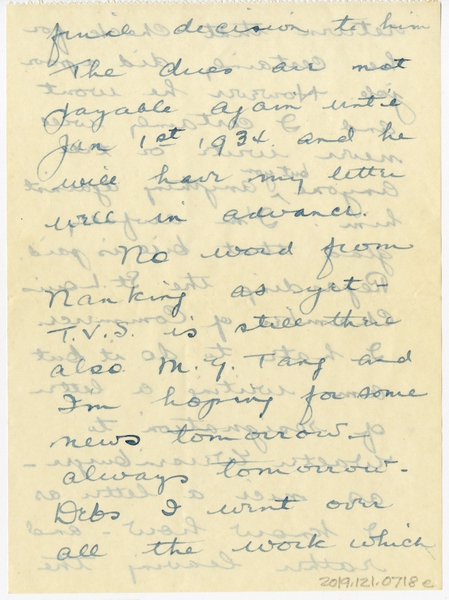 final decision to him
The dues are not
payable again until
Jan 1st 1934 and he
will have my letter
well in advance.
No word from
Nanking as yet -
T.V.S. is still there
also M. Y. Tang and
I'm hoping for some
news tomorrow -
always tomorrow.
Debs I went over
all the work which
2019.121.0718e